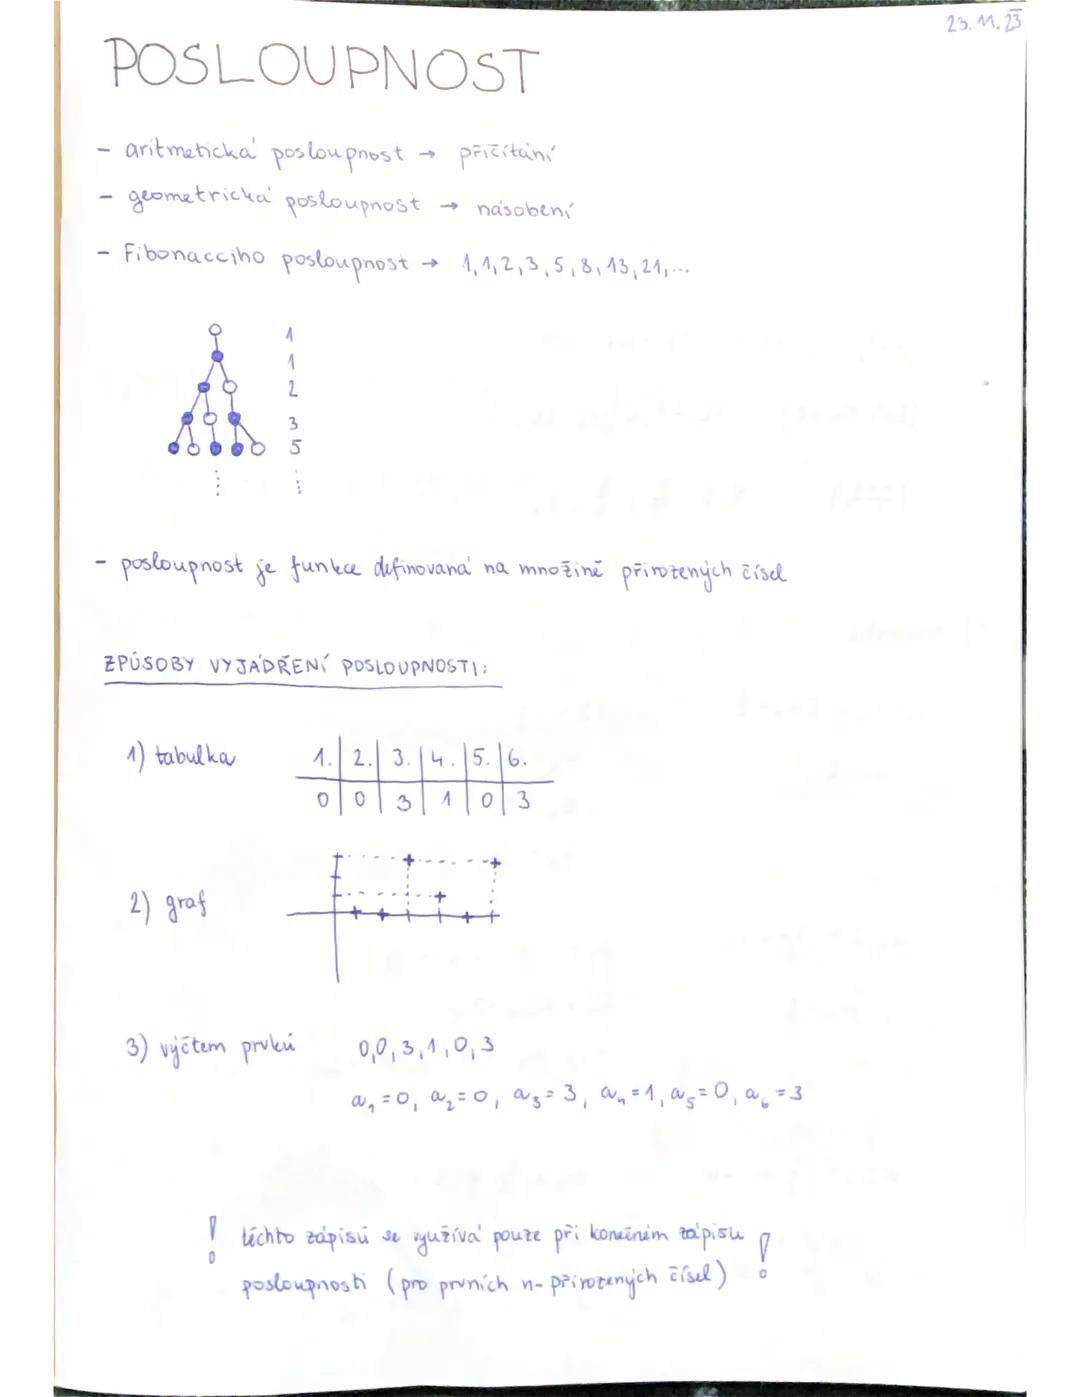 23.11.23
POSLOUPNOST
- aritmetická posloupnost → přičítání
- geometrická posloupnost → násobení
- Fibonacciho posloupnost → 1,1,2,3,5,8,13,21,...
1
1
2
3
5
- posloupnost je funkce definovaná na množině přirozených čísel
ZPŮSOBY VYJÁDŘENÍ POSLOUPNOSTI:
1) tabulka
1. 2. 3. 4. 5. 6.
0 0 3 1 0 3
2) graf
3) výčtem prvků 0,0,3,1,0,3
a₁=0, a₂=0, a₃=3, a₄=1, a₅=0, a₆=3
! těchto zápisů se využívá pouze při konečném zápisu !
posloupnosti (pro prvních n-přirozených čísel)